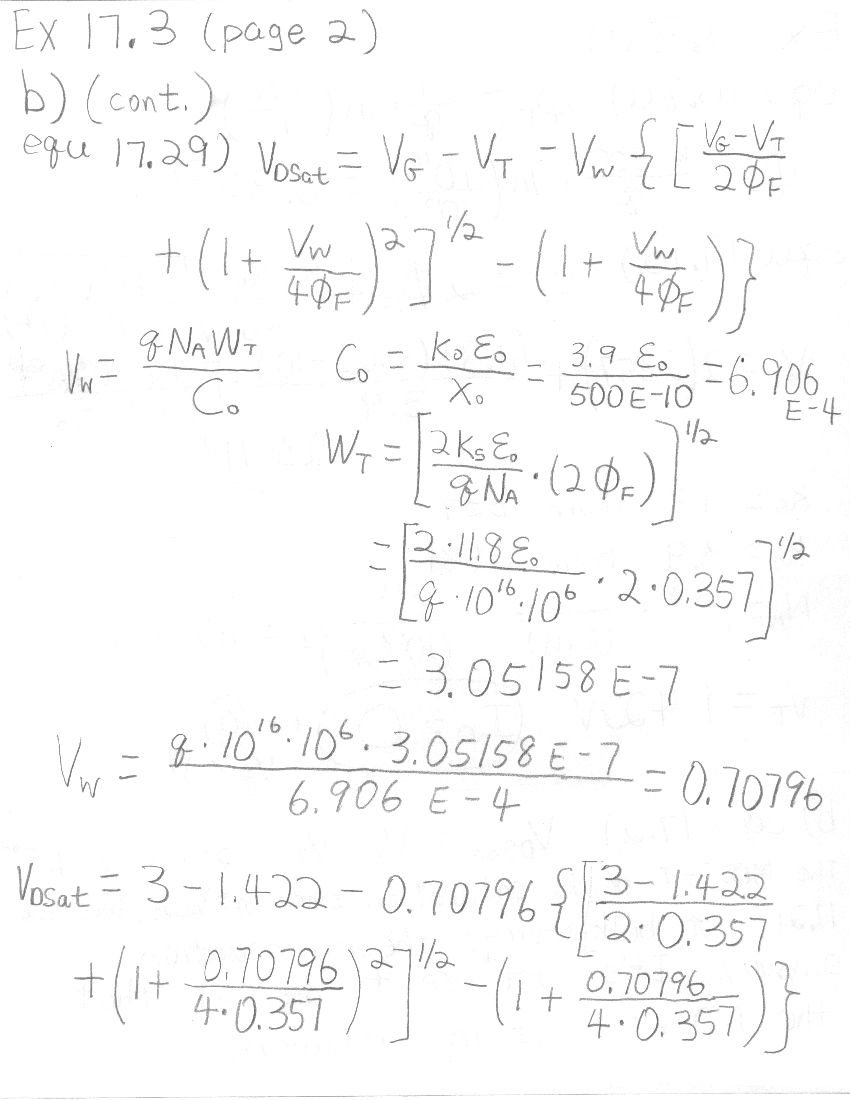 Ex 17.3 (page 2)
b) (cont.)
equ 17.29) V_DSat = V_G - V_T - V_W { [ (V_G - V_T)/(2Φ_F)
+ (1 + V_W/(4Φ_F))^2 ]^1/2 - (1 + V_W/(4Φ_F)) }
V_W = (q N_A W_T)/C_o    C_o = (K_o ε_o)/x_o = (3.9 ε_o)/(500E-10) = 6.906 E-4
W_T = [ (2 K_S ε_o)/(q N_A) · (2 Φ_F) ]^1/2
= [ (2·11.8 ε_o)/(q·10^16·10^6) · 2·0.357 ]^1/2
= 3.05158 E-7
V_W = (q·10^16·10^6·3.05158 E-7)/(6.906 E-4) = 0.70796
V_DSat = 3 - 1.422 - 0.70796 { [ (3 - 1.422)/(2·0.357)
+ (1 + 0.70796/(4·0.357))^2 ]^1/2 - (1 + 0.70796/(4·0.357)) }